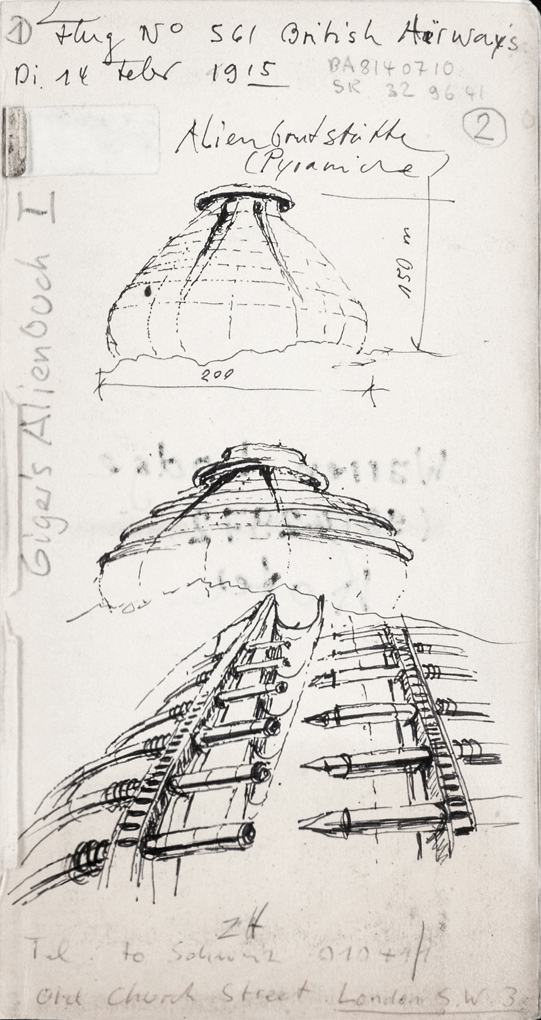 1) Flug No 561 British Airways
Di. 14 Febr 1915
BA8140710
SR 32 96 41
2
Alienbrutstätte
(Pyramide)
150 m
200
Giger's Alienbuch I
ZH
Tel. to Schweiz 010 41
Old Church Street London S.W. 3